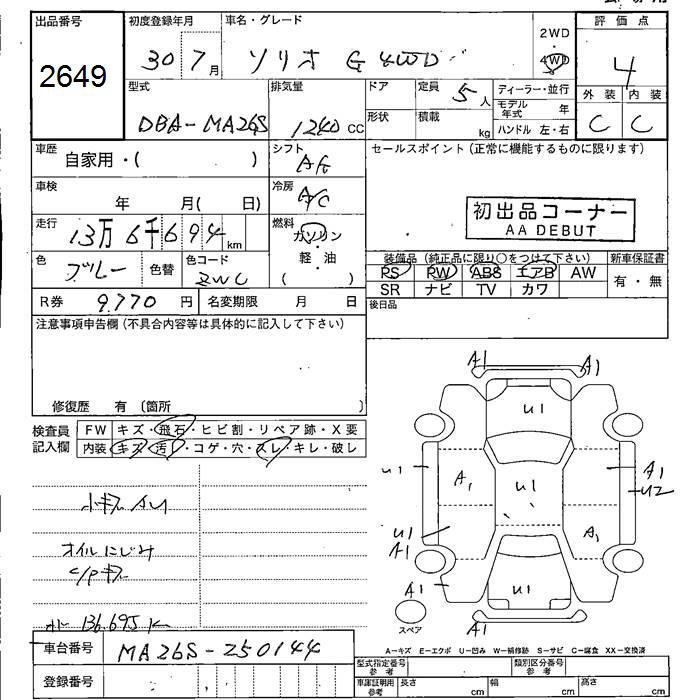 出品番号 初度登録年月 車名・グレード 評価点
2649 30 7月 ソリオ G 4WD 2WD 4WD 4
型式 排気量 ドア 定員 5人 ディーラー・並行 外装 内装
DBA-MA26S 1240 CC 形状 積載 kg モデル年式 年 C C
ハンドル 左・右
車歴 自家用・( ) シフト AF セールスポイント(正常に機能するものに限ります)
車検 年 月( 日) 冷房 A/C
初出品コーナー
AA DEBUT
走行 13万6千694km 燃料 ガソリン・軽・油 ( )
色 ブルー 色替 色コード ZWC
装備品(純正品に限り○をつけて下さい) 新車保証書
PS PW ABS エアB AW 有・無
SR ナビ TV カワ
R券 9.770円 名変期限 月 日 後日品
注意事項申告欄(不具合内容等は具体的に記入して下さい)
修復歴 有〔箇所 〕
検査員記入欄 FW キズ・飛石・ヒビ割・リペア跡・X要
内装 キズ・汚・コゲ・穴・スレ・キレ・破レ
小キズAU
オイルにじみ
C/Pキズ
136.695K
A1 A1
U1
U1 A1 U1 A1 U2
U1 A1 A1
A1 U1
A1
スペア
A-キズ E-エクボ U-凹み W-補修跡 S-サビ C-腐食 XX-交換済
車台番号 MA26S-250144
登録番号
型式指定番号 参考 類別区分番号 参考
車庫証明用 参考 長さ cm 幅 cm 高さ cm